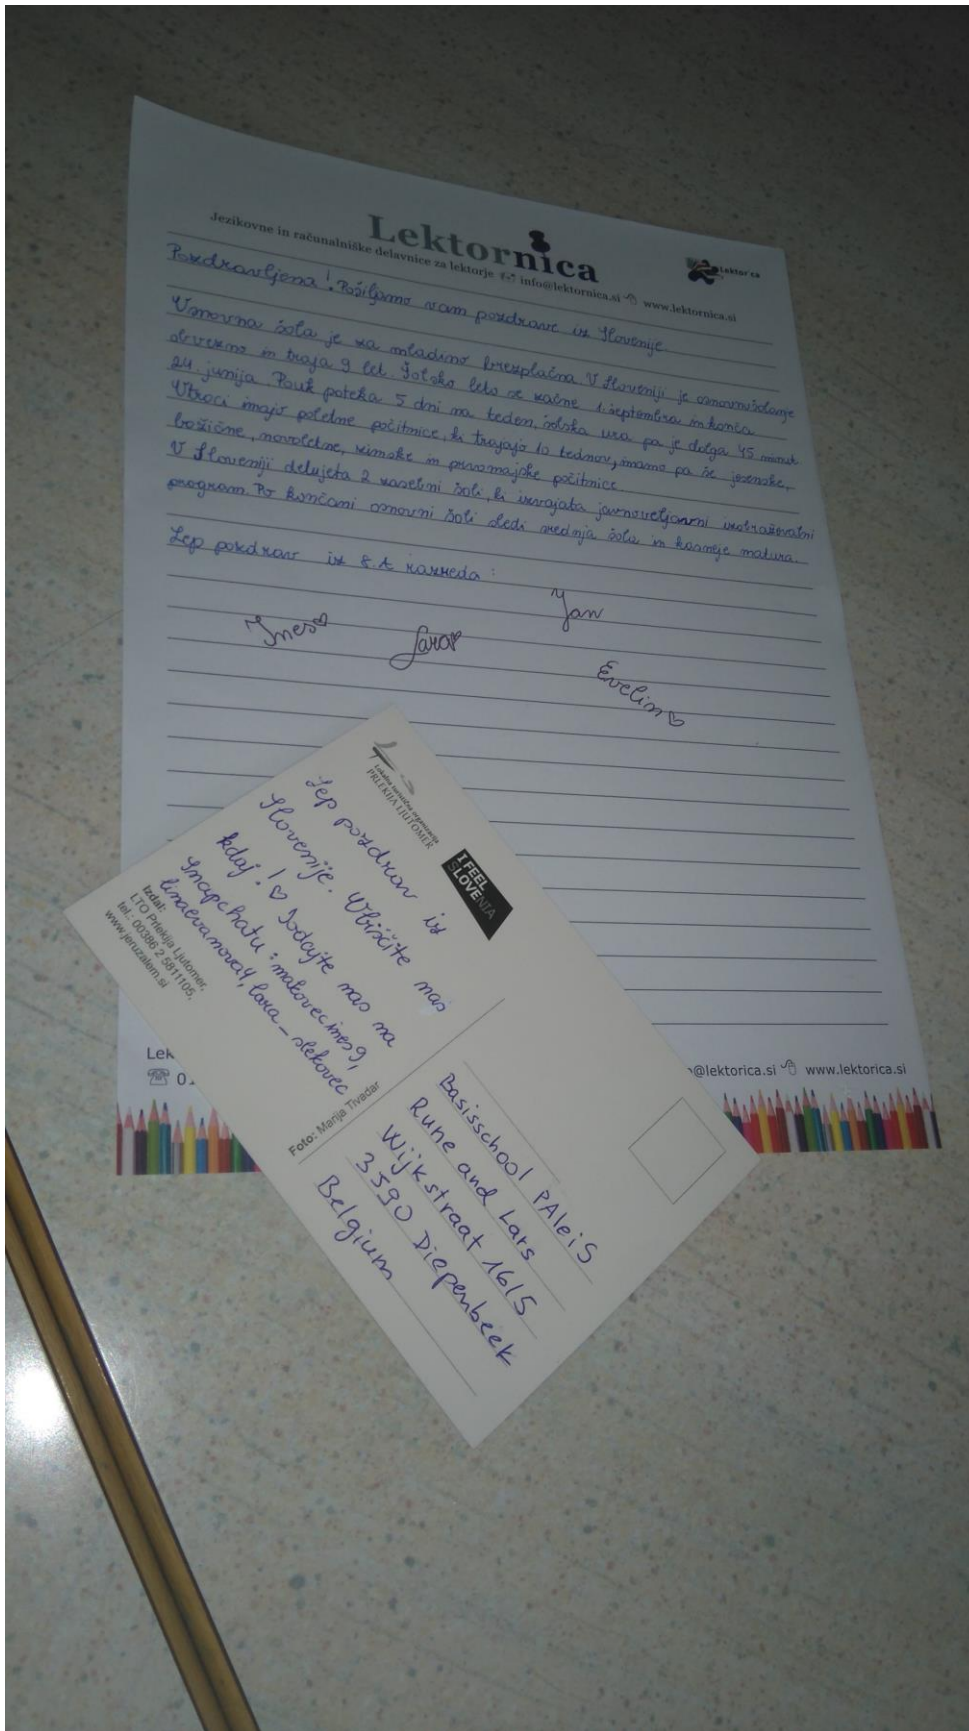 Lektornica
Jezikovne in računalniške delavnice za lektorje info@lektornica.si www.lektornica.si
Lektor'ca
Pozdravljena! Pošiljamo vam pozdrave iz Slovenije.
Osnovna šola je za mladino brezplačna. V Sloveniji je osnovnošolanje
obvezno in traja 9 let. Šolsko leto se začne 1. septembra in konča
24. junija. Pouk poteka 5 dni na teden, šolska ura pa je dolga 45 minut.
Otroci imajo poletne počitnice, ki trajajo 10 tednov, imamo pa še jesenske,
božične, novoletne, zimske in prvomajske počitnice.
V Sloveniji delujeta 2 zasebni šoli, ki izvajata javnoveljavni izobraževalni
program. Po končani osnovni šoli sledi srednja šola in kasneje matura.
Lep pozdrav iz 8. A razreda:
Jan
Ines♡
Lara♡
Evelin♡
Lokalna turistična organizacija
PRLEKIJA LJUTOMER
I FEEL
SLOVENIA
Lep pozdrav iz
Slovenije. Obiščite nas
kdaj! ♡ Dodajte nas na
Snapchatu: makovecines9,
linaevanova4, lara_slekovec
Izdal:
LTO Prlekija Ljutomer,
tel.: 00386 2 5811105,
www.jeruzalem.si
Foto: Marija Tivadar
Basisschool PAleiS
Rune and Lars
Wijkstraat 16/5
3590 Diepenbeek
Belgium
Lek
0
@lektorica.si www.lektorica.si